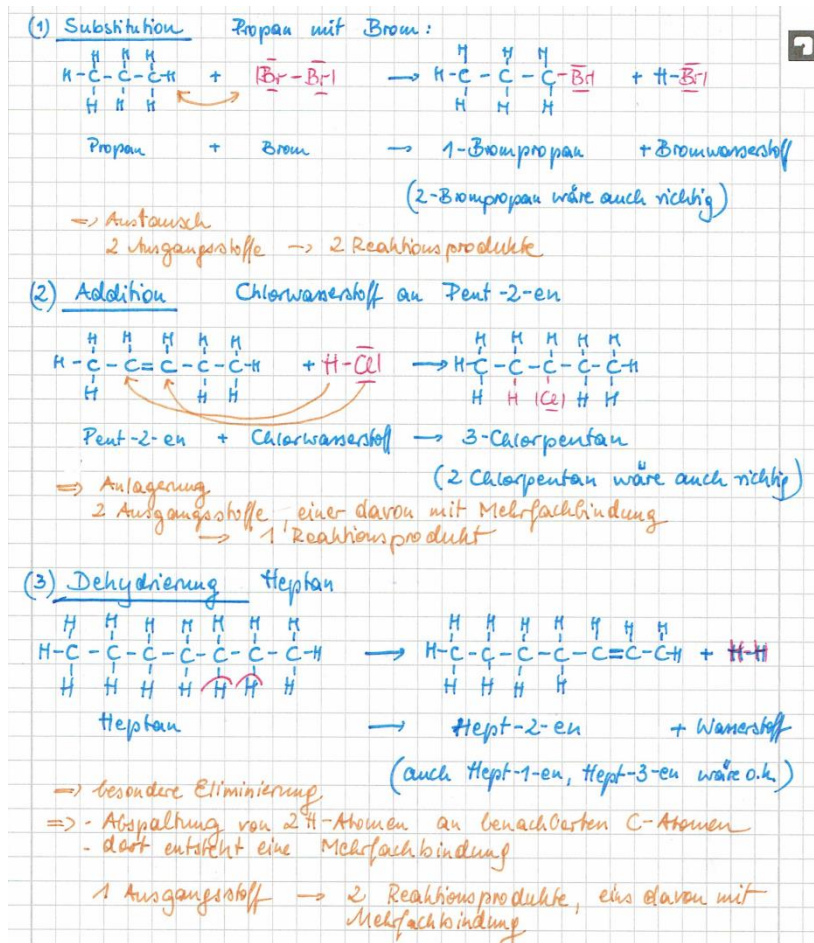 (1) Substitution Propan mit Brom:
H H H
H-C-C-C-H + |Br-Br| → H-C-C-C-Br| + H-Br|
H H H H H H
Propan + Brom → 1-Brompropan + Bromwasserstoff
(2-Brompropan wäre auch richtig)
=> Austausch
2 Ausgangsstoffe → 2 Reaktionsprodukte
(2) Addition Chlorwasserstoff an Pent-2-en
H H H H H H H H H H
H-C-C=C-C-C-H + H-Cl| → H-C-C-C-C-C-H
H H H H H |Cl| H H
Pent-2-en + Chlorwasserstoff → 3-Chlorpentan
(2 Chlorpentan wäre auch richtig)
=> Anlagerung
2 Ausgangsstoffe, einer davon mit Mehrfachbindung
→ 1 Reaktionsprodukt
(3) Dehydrierung Heptan
H H H H H H H H H H H H H H
H-C-C-C-C-C-C-C-H → H-C-C-C-C-C=C-C-H + H-H
H H H H H H H H H H H
Heptan → Hept-2-en + Wasserstoff
(auch Hept-1-en, Hept-3-en wäre o.k.)
=> besondere Eliminierung
=> - Abspaltung von 2 H-Atomen an benachbarten C-Atomen
- dort entsteht eine Mehrfachbindung
1 Ausgangsstoff → 2 Reaktionsprodukte, eins davon mit
Mehrfachbindung